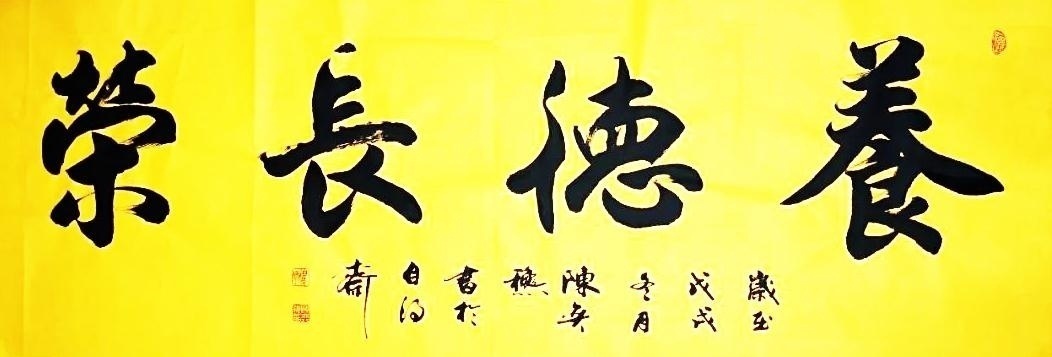 養德長榮
歲至
戊戌
冬月
陳英
穗
書於
自得
齋